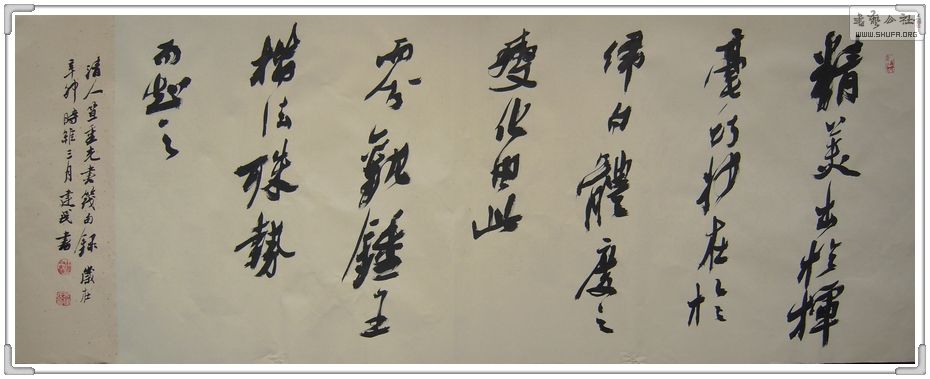 精美出於揮
毫巧妙在於
佈白體度之
變化由此
而分觀鍾王
楷法殊勢
而知之
清人笪重光書筏句錄 歲在
辛卯時維三月建民書
書藝公社
WWW.SHUFA.ORG